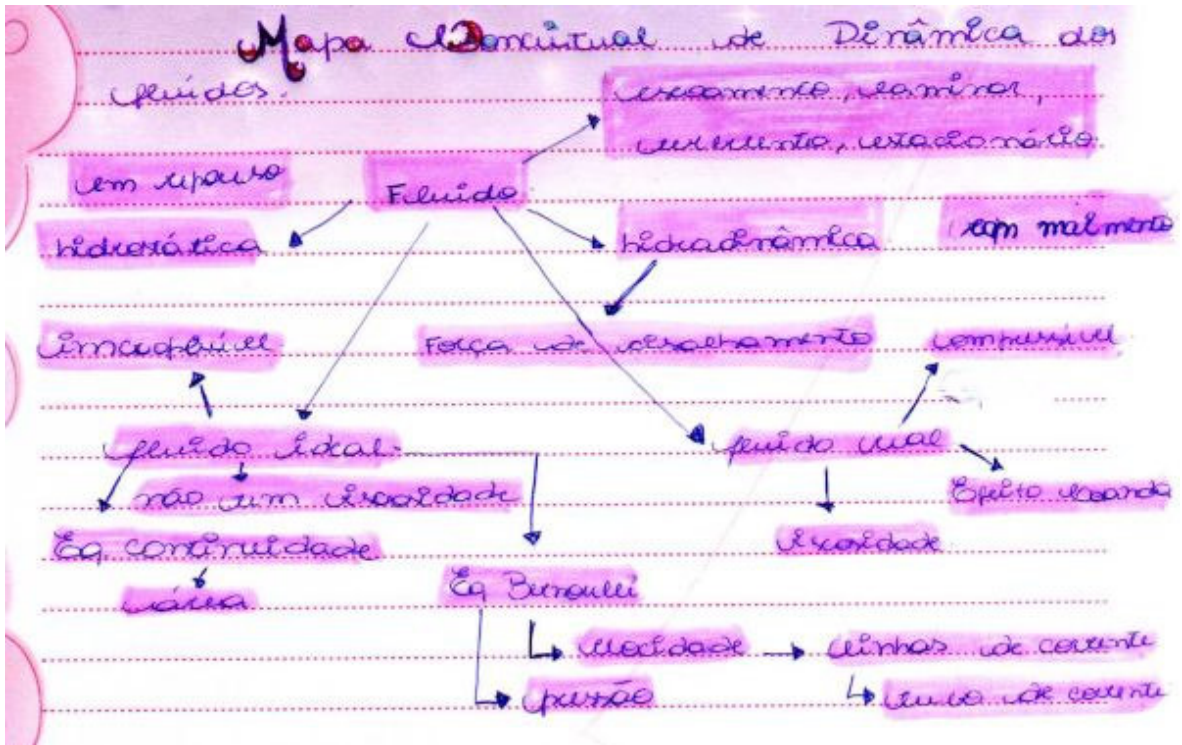 Mapa Conceitual de Dinâmica dos
fluidos.
escoamento, laminar,
turbulento, estacionário
em repouso
Fluido
hidrostática
hidrodinâmica
com movimento
Força de cisalhamento
compressível
fluido ideal
fluido real
não tem viscosidade
Efeito
Eq continuidade
viscosidade
área
Eq Bernoulli
velocidade
linhas de corrente
pressão
de corrente